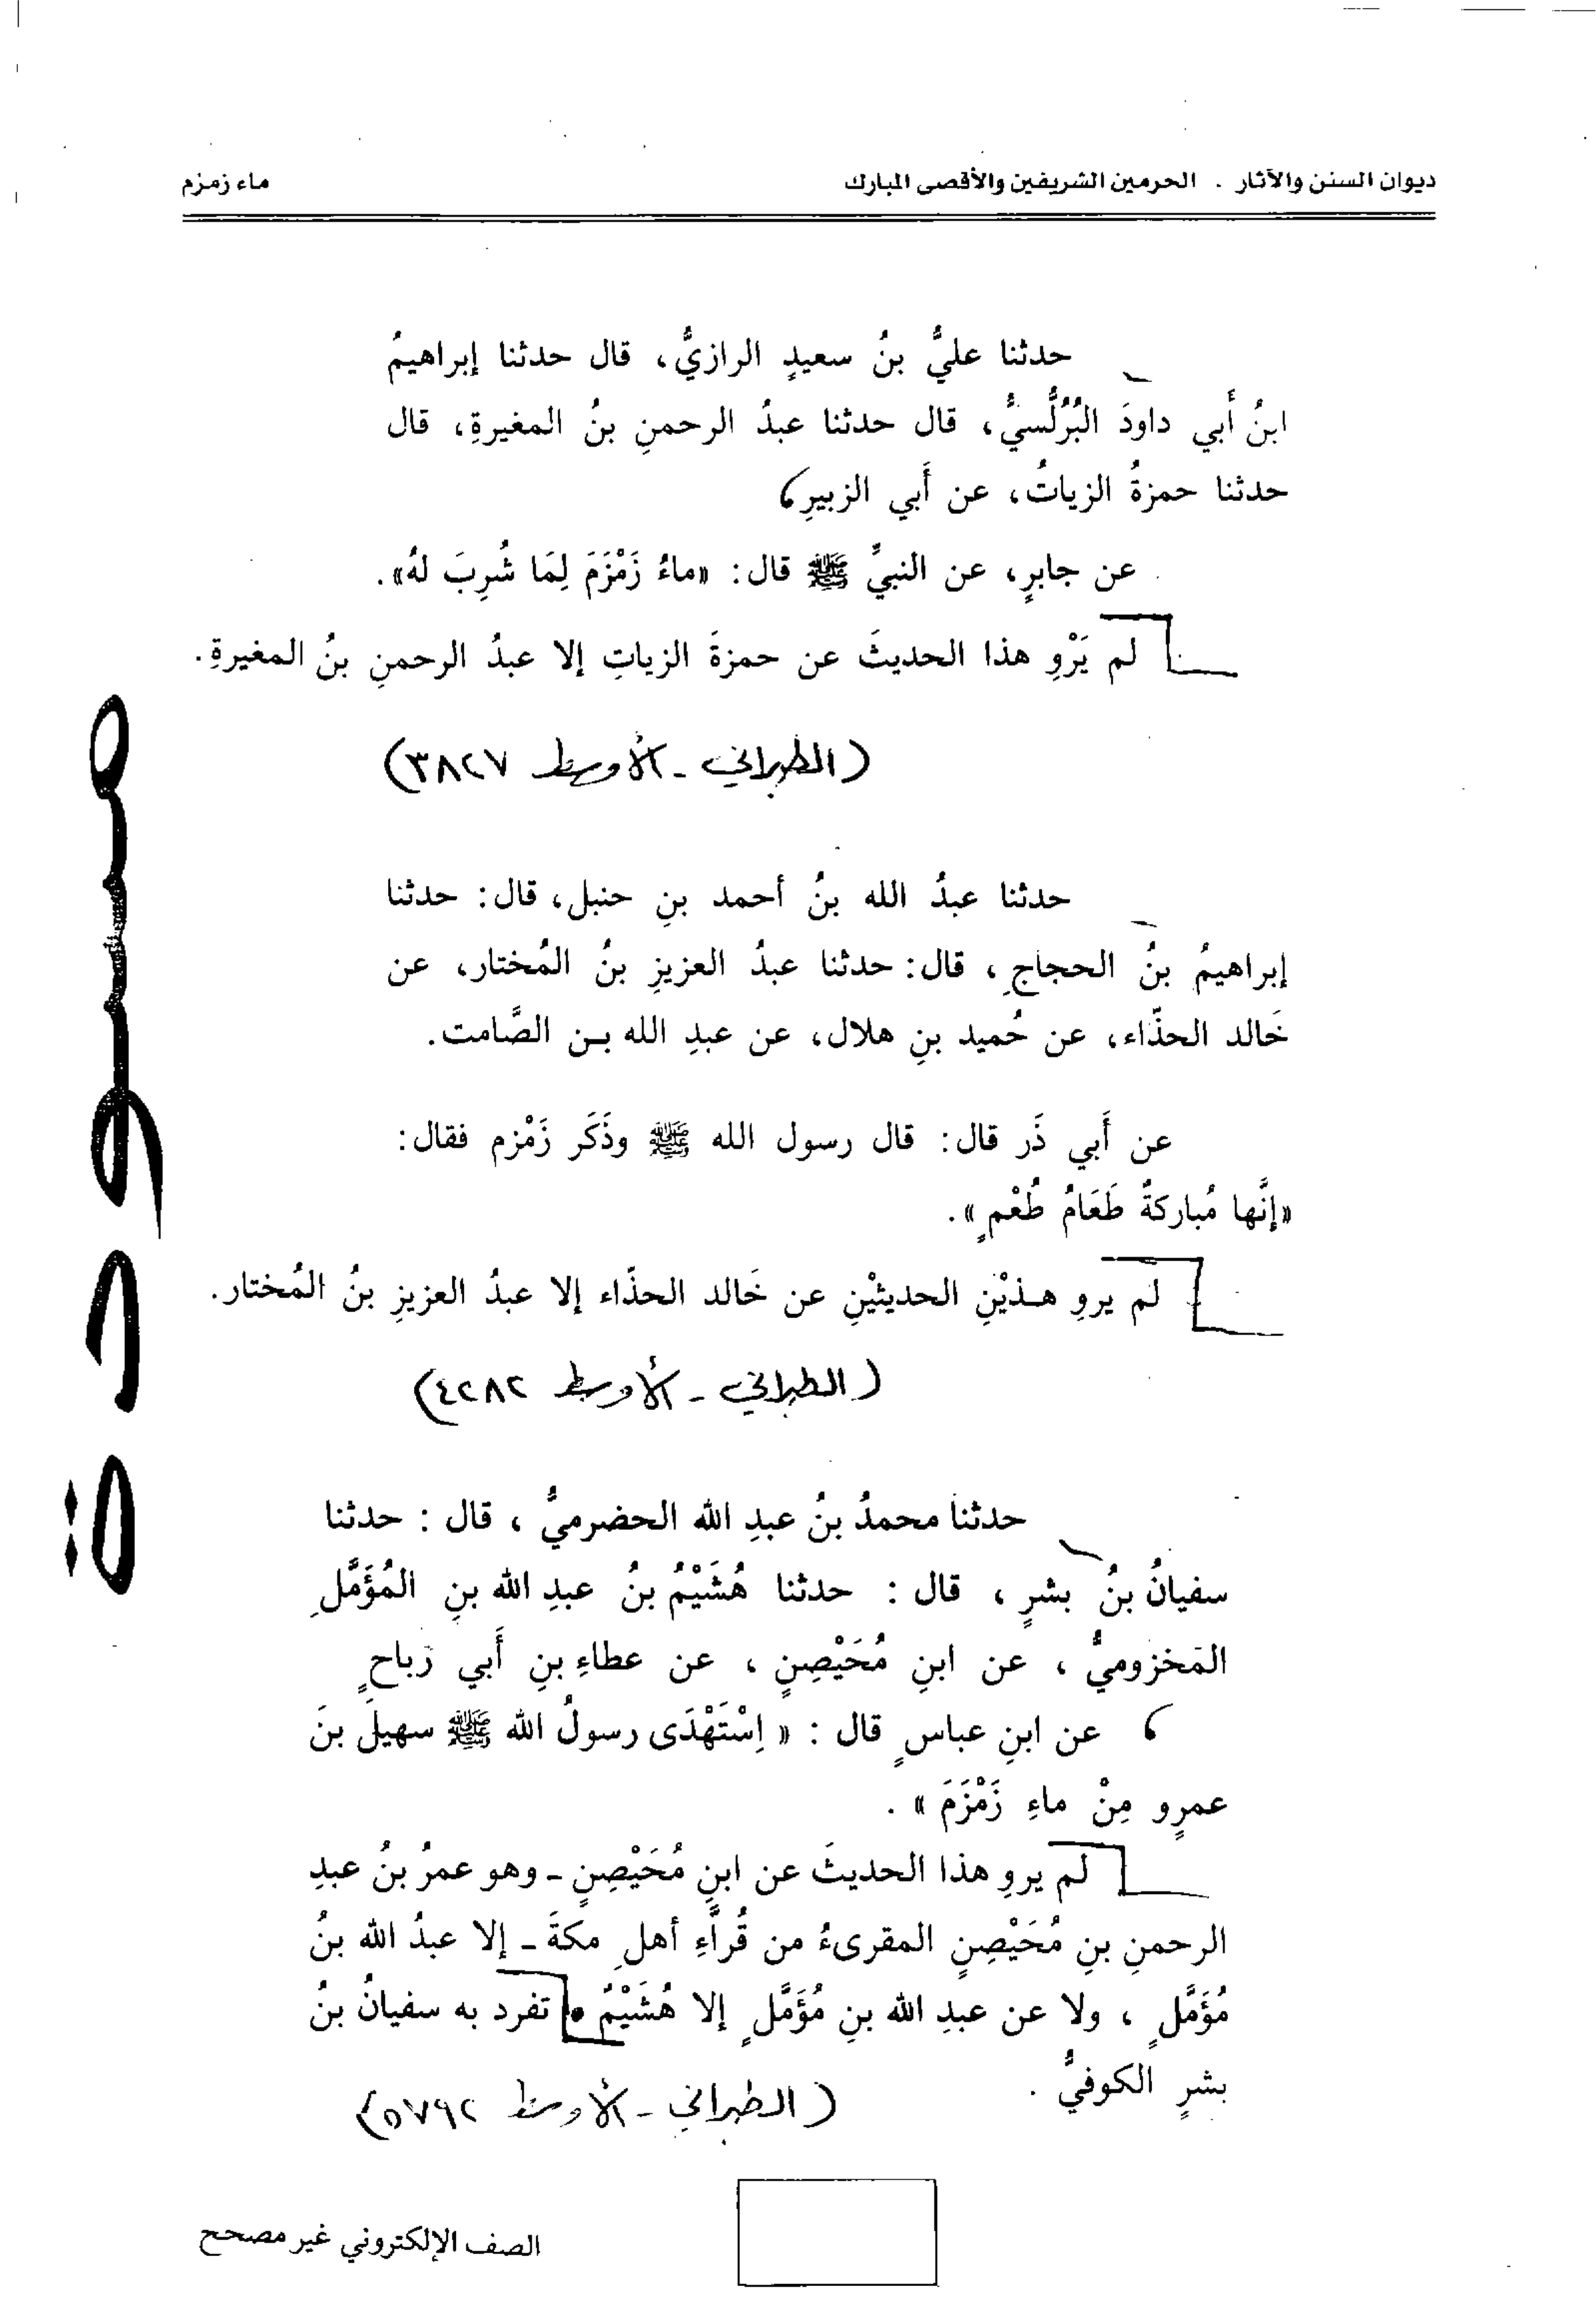 ديوان السنن والآثار . الحرمين الشريفين والأقصى المبارك
ماء زمزم
حدثنا عليُّ بنُ سعيدٍ الرازيُّ، قال حدثنا إبراهيمُ
ابنُ أَبي داودَ البُرُلُّسيُّ، قال حدثنا عبدُ الرحمنِ بنُ المغيرةِ، قال
حدثنا حمزةُ الزياتُ، عن أَبي الزبيرِ،
عن جابرٍ، عن النبيِّ ﷺ قال: «ماءُ زَمْزَمَ لِمَا شُرِبَ لهُ».
لم يَرْوِ هذا الحديثَ عن حمزةَ الزياتِ إلا عبدُ الرحمنِ بنُ المغيرةِ.
(الطبراني - الأوسط ٣٨٢٧)
حدثنا عبدُ الله بنُ أحمد بنِ حنبل، قال: حدثنا
إبراهيمُ بنُ الحجاجِ، قال: حدثنا عبدُ العزيزِ بنُ المُختار، عن
خَالد الحذّاء، عن حُميد بنِ هلال، عن عبدِ الله بـن الصَّامت.
عن أَبي ذَر قال: قال رسول الله ﷺ وذَكَر زَمْزم فقال:
«إنَّها مُباركةٌ طَعَامُ طُعْمٍ».
لم يروِ هـذيْنِ الحديثيْنِ عن خَالد الحذّاء إلا عبدُ العزيزِ بنُ المُختار.
(الطبراني - الأوسط ٤٢٨٢)
حدثنا محمدُ بنُ عبدِ الله الحضرميُّ ، قال : حدثنا
سفيانُ بنُ بشرٍ ، قال : حدثنا هُشَيْمُ بنُ عبدِ الله بنِ المُؤَمَّلِ
المَخزوميُّ ، عن ابنِ مُحَيْصِنٍ ، عن عطاءِ بنِ أَبي رَباحٍ
، عن ابنِ عباسٍ قال : « اِسْتَهْدَى رسولُ الله ﷺ سهيلَ بنَ
عمرٍو مِنْ ماءِ زَمْزَمَ » .
لم يروِ هذا الحديثَ عن ابنِ مُحَيْصِنٍ ـ وهو عمرُ بنُ عبدِ
الرحمنِ بنِ مُحَيْصِنٍ المقرىءُ من قُرَّاءِ أهلِ مكةَ ـ إلا عبدُ الله بنُ
مُؤَمَّلٍ ، ولا عن عبدِ الله بنِ مُؤَمَّلٍ إلا هُشَيْمٌ . تفرد به سفيانُ بنُ
بشرٍ الكوفيُّ .
(الطبراني - الأوسط ٥٧٩٢)
الصف الإلكتروني غير مصحح
مسودة